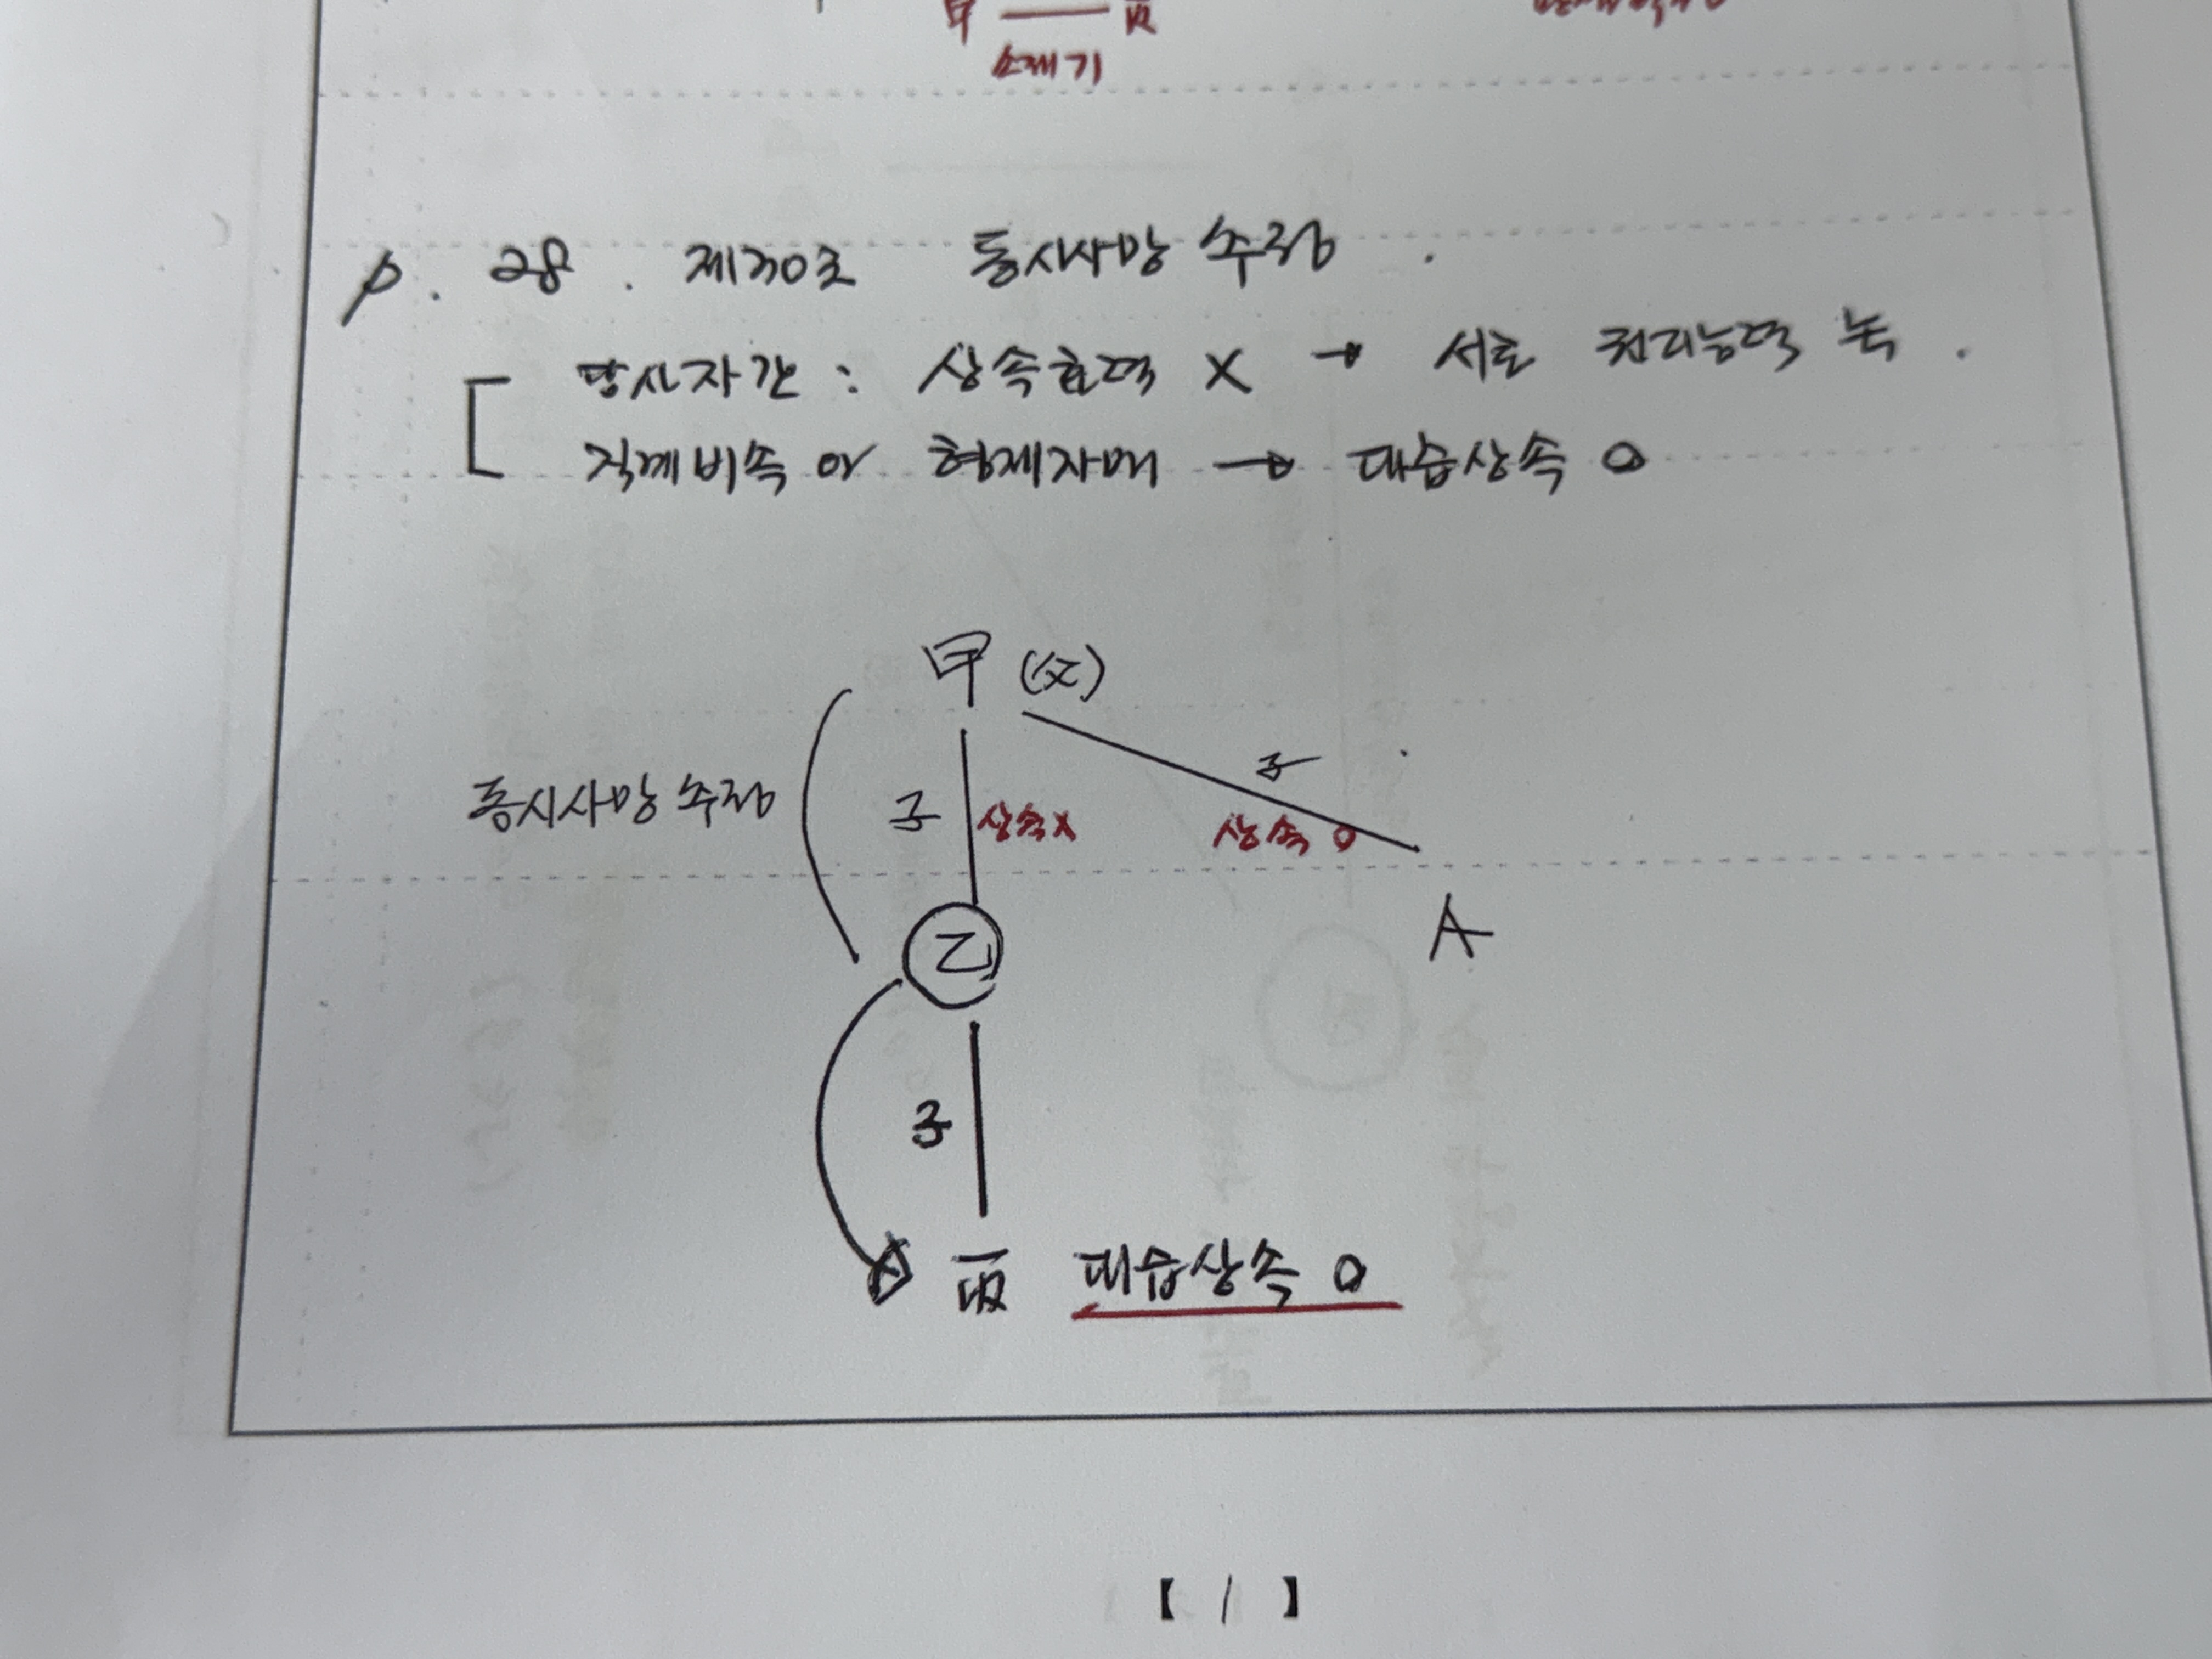 甲 丙
소제기
p. 28. 제30조 동시사망 추정.
당사자간 : 상속효력 X → 서로 권리능력 눅.
직계비속 or 형제자매 → 대습상속 O
甲 (父)
子
동시사망 추정 子 상속X 상속 O
乙 A
子
丙 대습상속 O
【 1 】